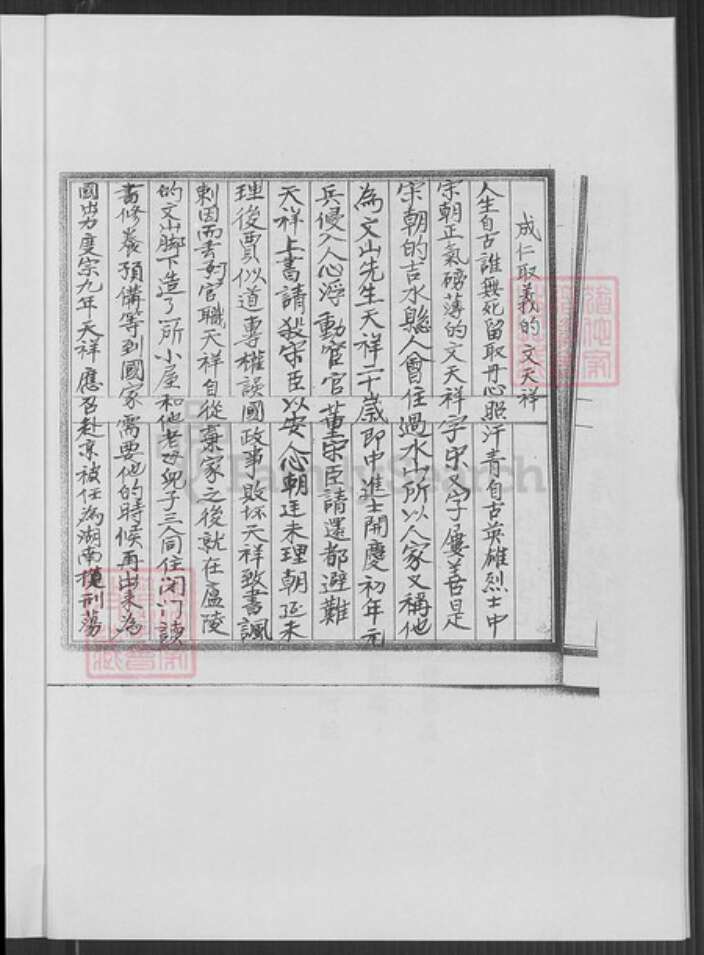 成仁取義的文天祥
人生自古誰無死留取丹心照汗青自古英雄烈士中
宋朝正氣磅薄的文天祥字宋又字屢善是
宋朝的吉水縣人曾住過水山所以人家又稱他
為文山先生天祥二十歲即中進士開慶初年元
兵侵入人心浮動宦官董宋臣請遷都避難
天祥上書請殺宋臣以安人心朝廷未理朝廷未
理後賈似道專權誤國政事敗坏天祥致書諷
刺因而丟了官職天祥自從棄家之後就在廬陵
的文山腳下造了所小屋和他老母兒子三人同住閉門讀
書修養預備等到國家需要他的時候再出來為
國出力度宗九年天祥應召赴京被任為湖南提刑蕩
FamilySearch